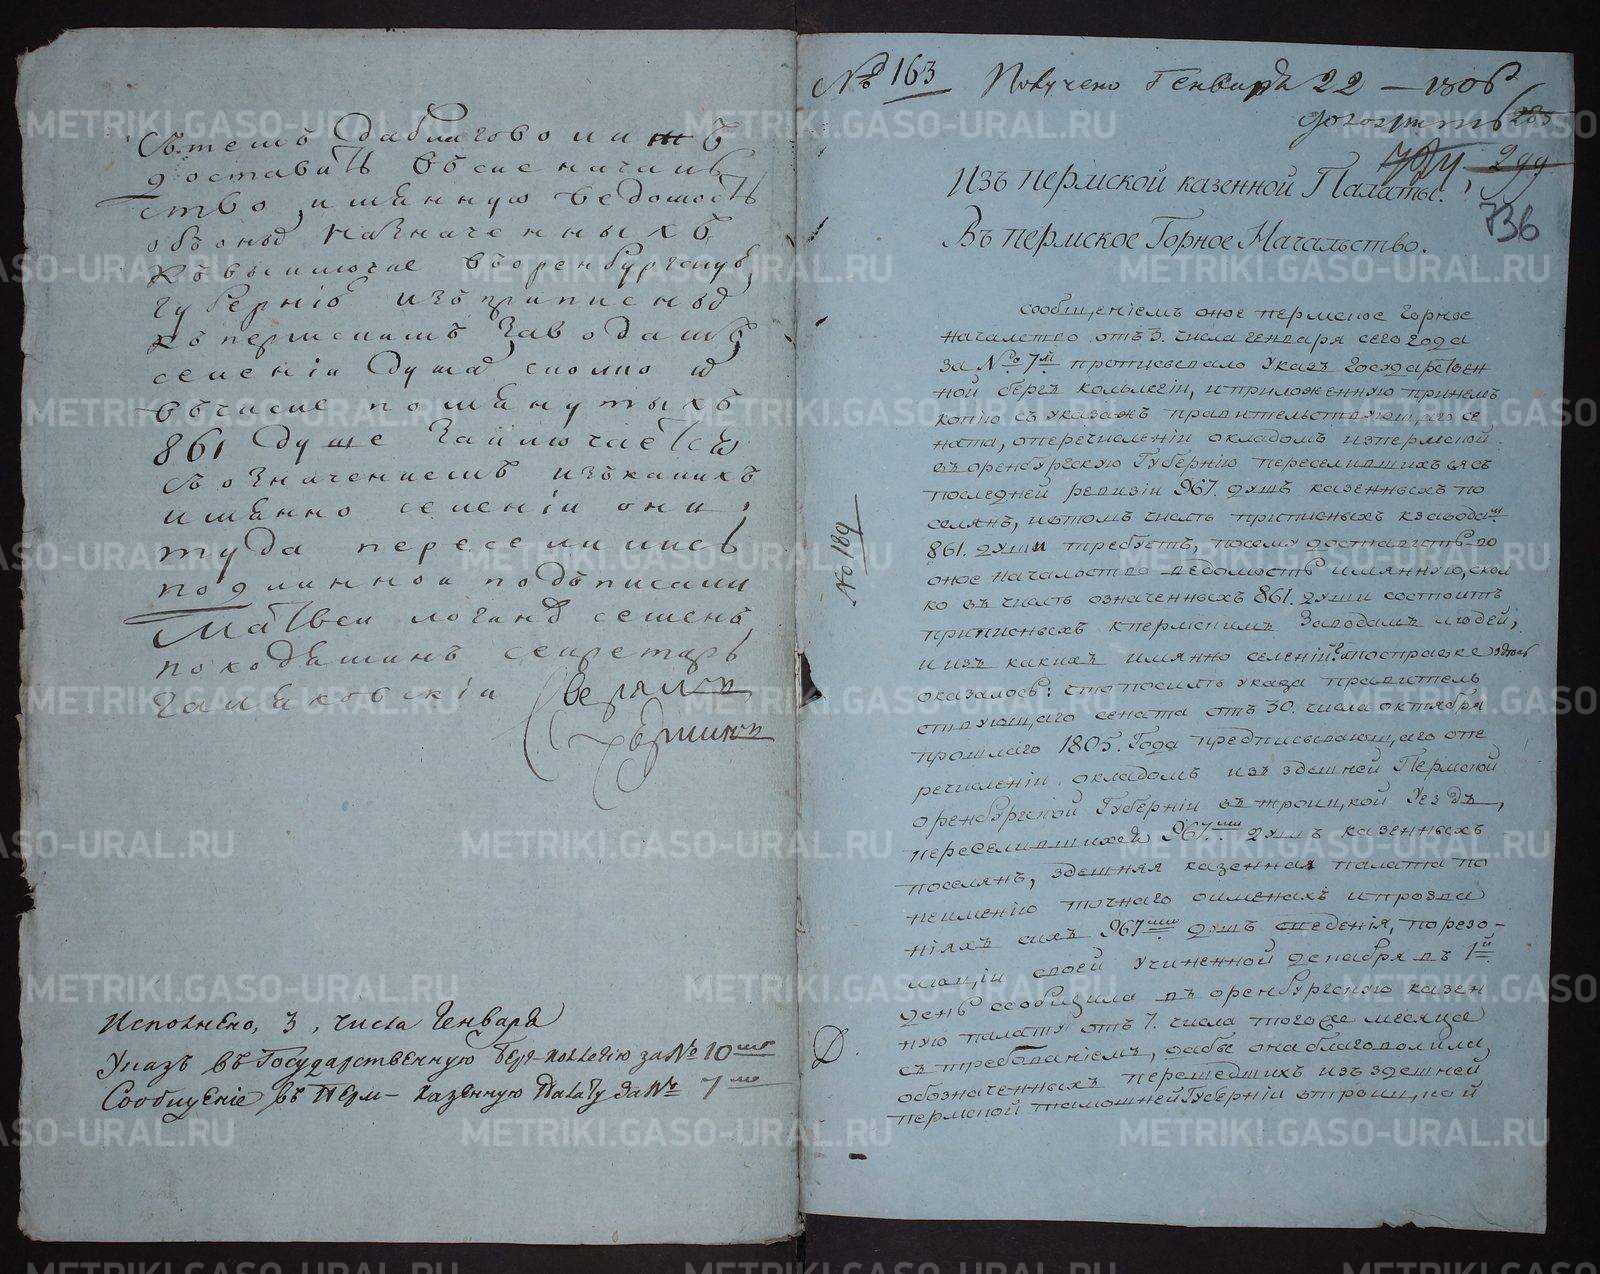 Стемъ даблаговолитъ
доставить всие началь
ство имянную ведомость
обоныхъ назначенныхъ
къвыключке вторенбургскую
губернію изприписныхъ
кпермскимъ заводамъ
селеніи душъ сколко
вчисле помянутыхъ
861 душе заключаетца
Созначениемъ изкакихъ
имянно селеніи они
туда переселились
подлинной подписали
Матвеи логинъ семенъ
походяшинъ секретарь
Исполнено, 3, числа Генваря
Указъ въ Государственную Берг-коллегію за № 10мъ
Сообщеніе въ Перм- казенную Палату за № 7мъ
№ 163 Получено Генваря 22 - 1806
736
Изъ пермской казенной Палаты.
Въ пермское Горное Начальство.
сообщеніемъ оное пермское горное
началство отъ 3. числа генваря сего года
за № 7й прописывало указъ государствен
ной бергъ кольлегіи, и приложенную принемъ
копію съ указажъ правительствующаго се
ната, оперечисленіи окладомъ изпермской
въ оренбургскую Губернію переселившихъ вясъ
последней ревизіи 967. душъ казенныхъ по
селянъ, ивтомъ числѣ приписныхъ кзаводамъ
861. души требуетъ, посему доставить во
оное началство ведомость имянную, скол
ко въ числѣ означенныхъ 861. души состоитъ
приписныхъ кпермскимъ Заводамъ людей,
и изъ какихъ имянно селеній? апосправке здѣсь
оказалось: что посилѣ указа правитель
ствующаго сената отъ 30. числа октября
прошлаго 1805. Года предписывающаго опе
речисленіи окладомъ изъ здешней Пермской
оренбургской Губерніи въ троицкой Уездъ,
переселившихся 967ми душъ казенныхъ
поселянъ, здешняя казенная палата по
неименію точнаго оименахъ ипрозва
ніяхъ сихъ 967ми душъ сведенія, порезо-
люціи своей учиненной декабря въ 1й
день сообщила въ оренбургскую казен
ную палату отъ 7. числа тогоже месяца
стребованіемъ, дабы она благоволила,
обозначенныхъ перешедшихъ изъ здешней
пермской тамошней Губерніи втроицкой
№ 189
METRIKI.GASO-URAL.RU